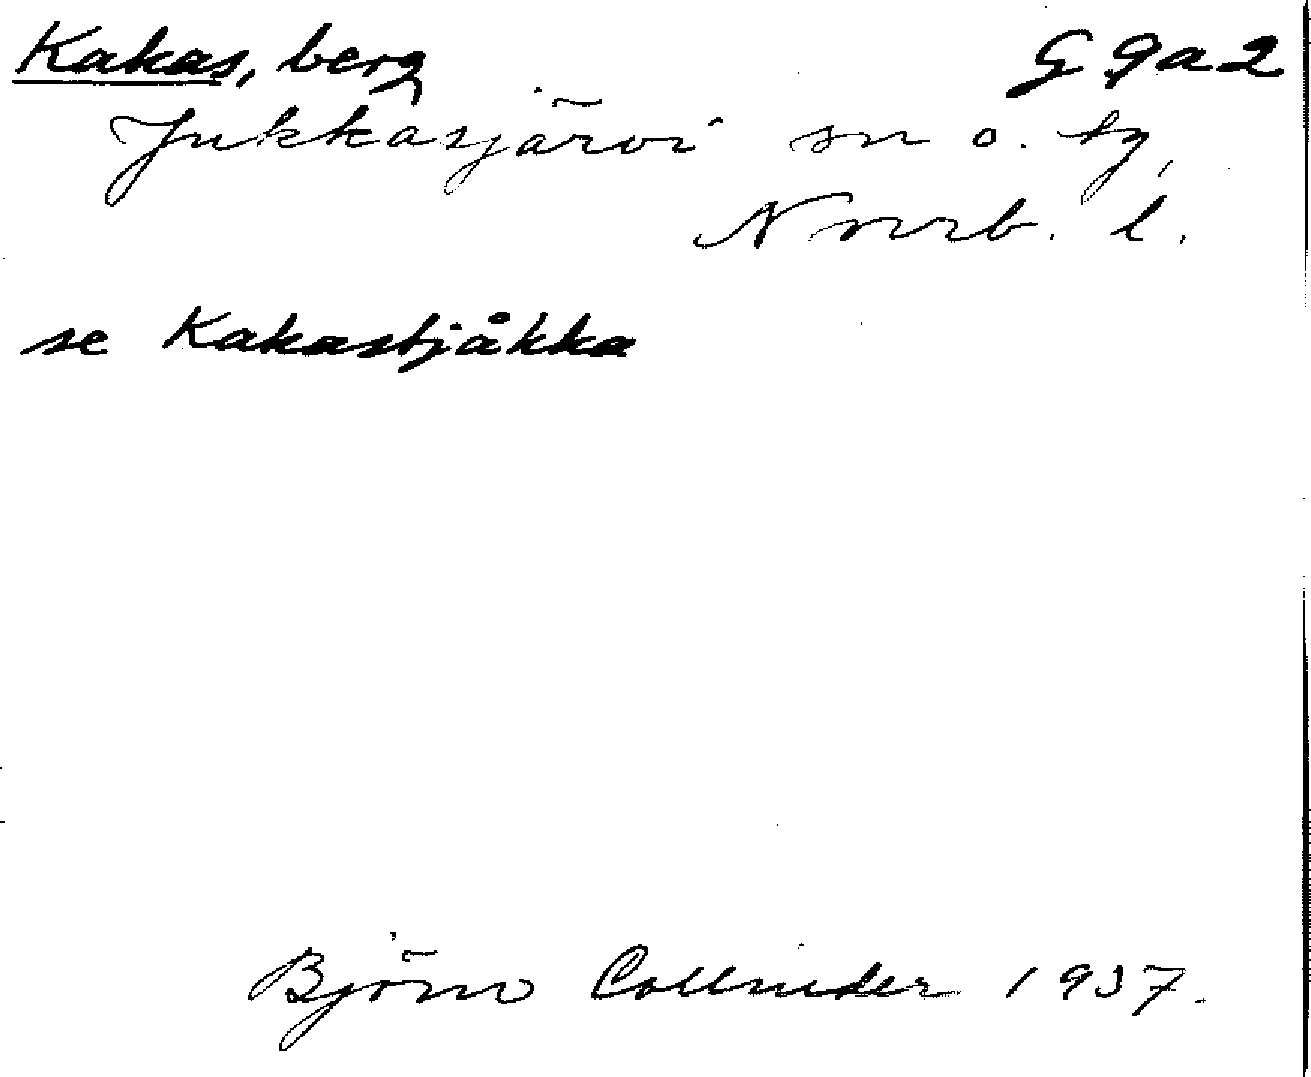 Kakas, berg G 9a2
Jukkasjärvi sn o. tg,
Norrb. l.
se Kakastjåkka
Björn Collinder 1937.